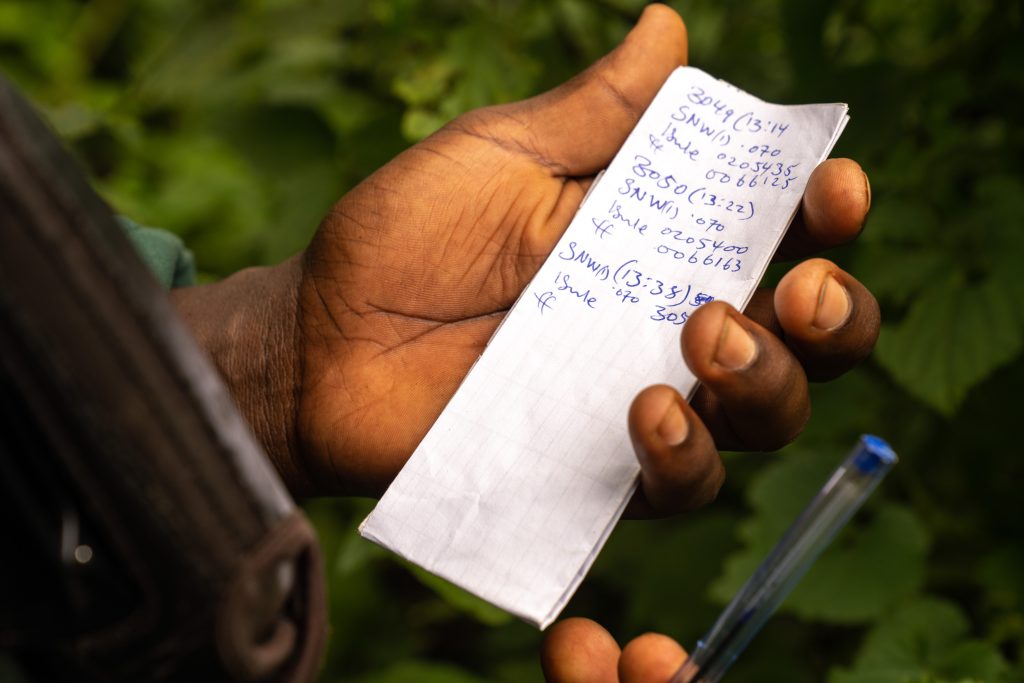 3049 (13:14
SNW(1) .070
Isule 0205435
0066125
3050 (13:22)
SNW(1) .070
Isule 0205400
0066163
SNW(1) (13:38)
Isule .070 305